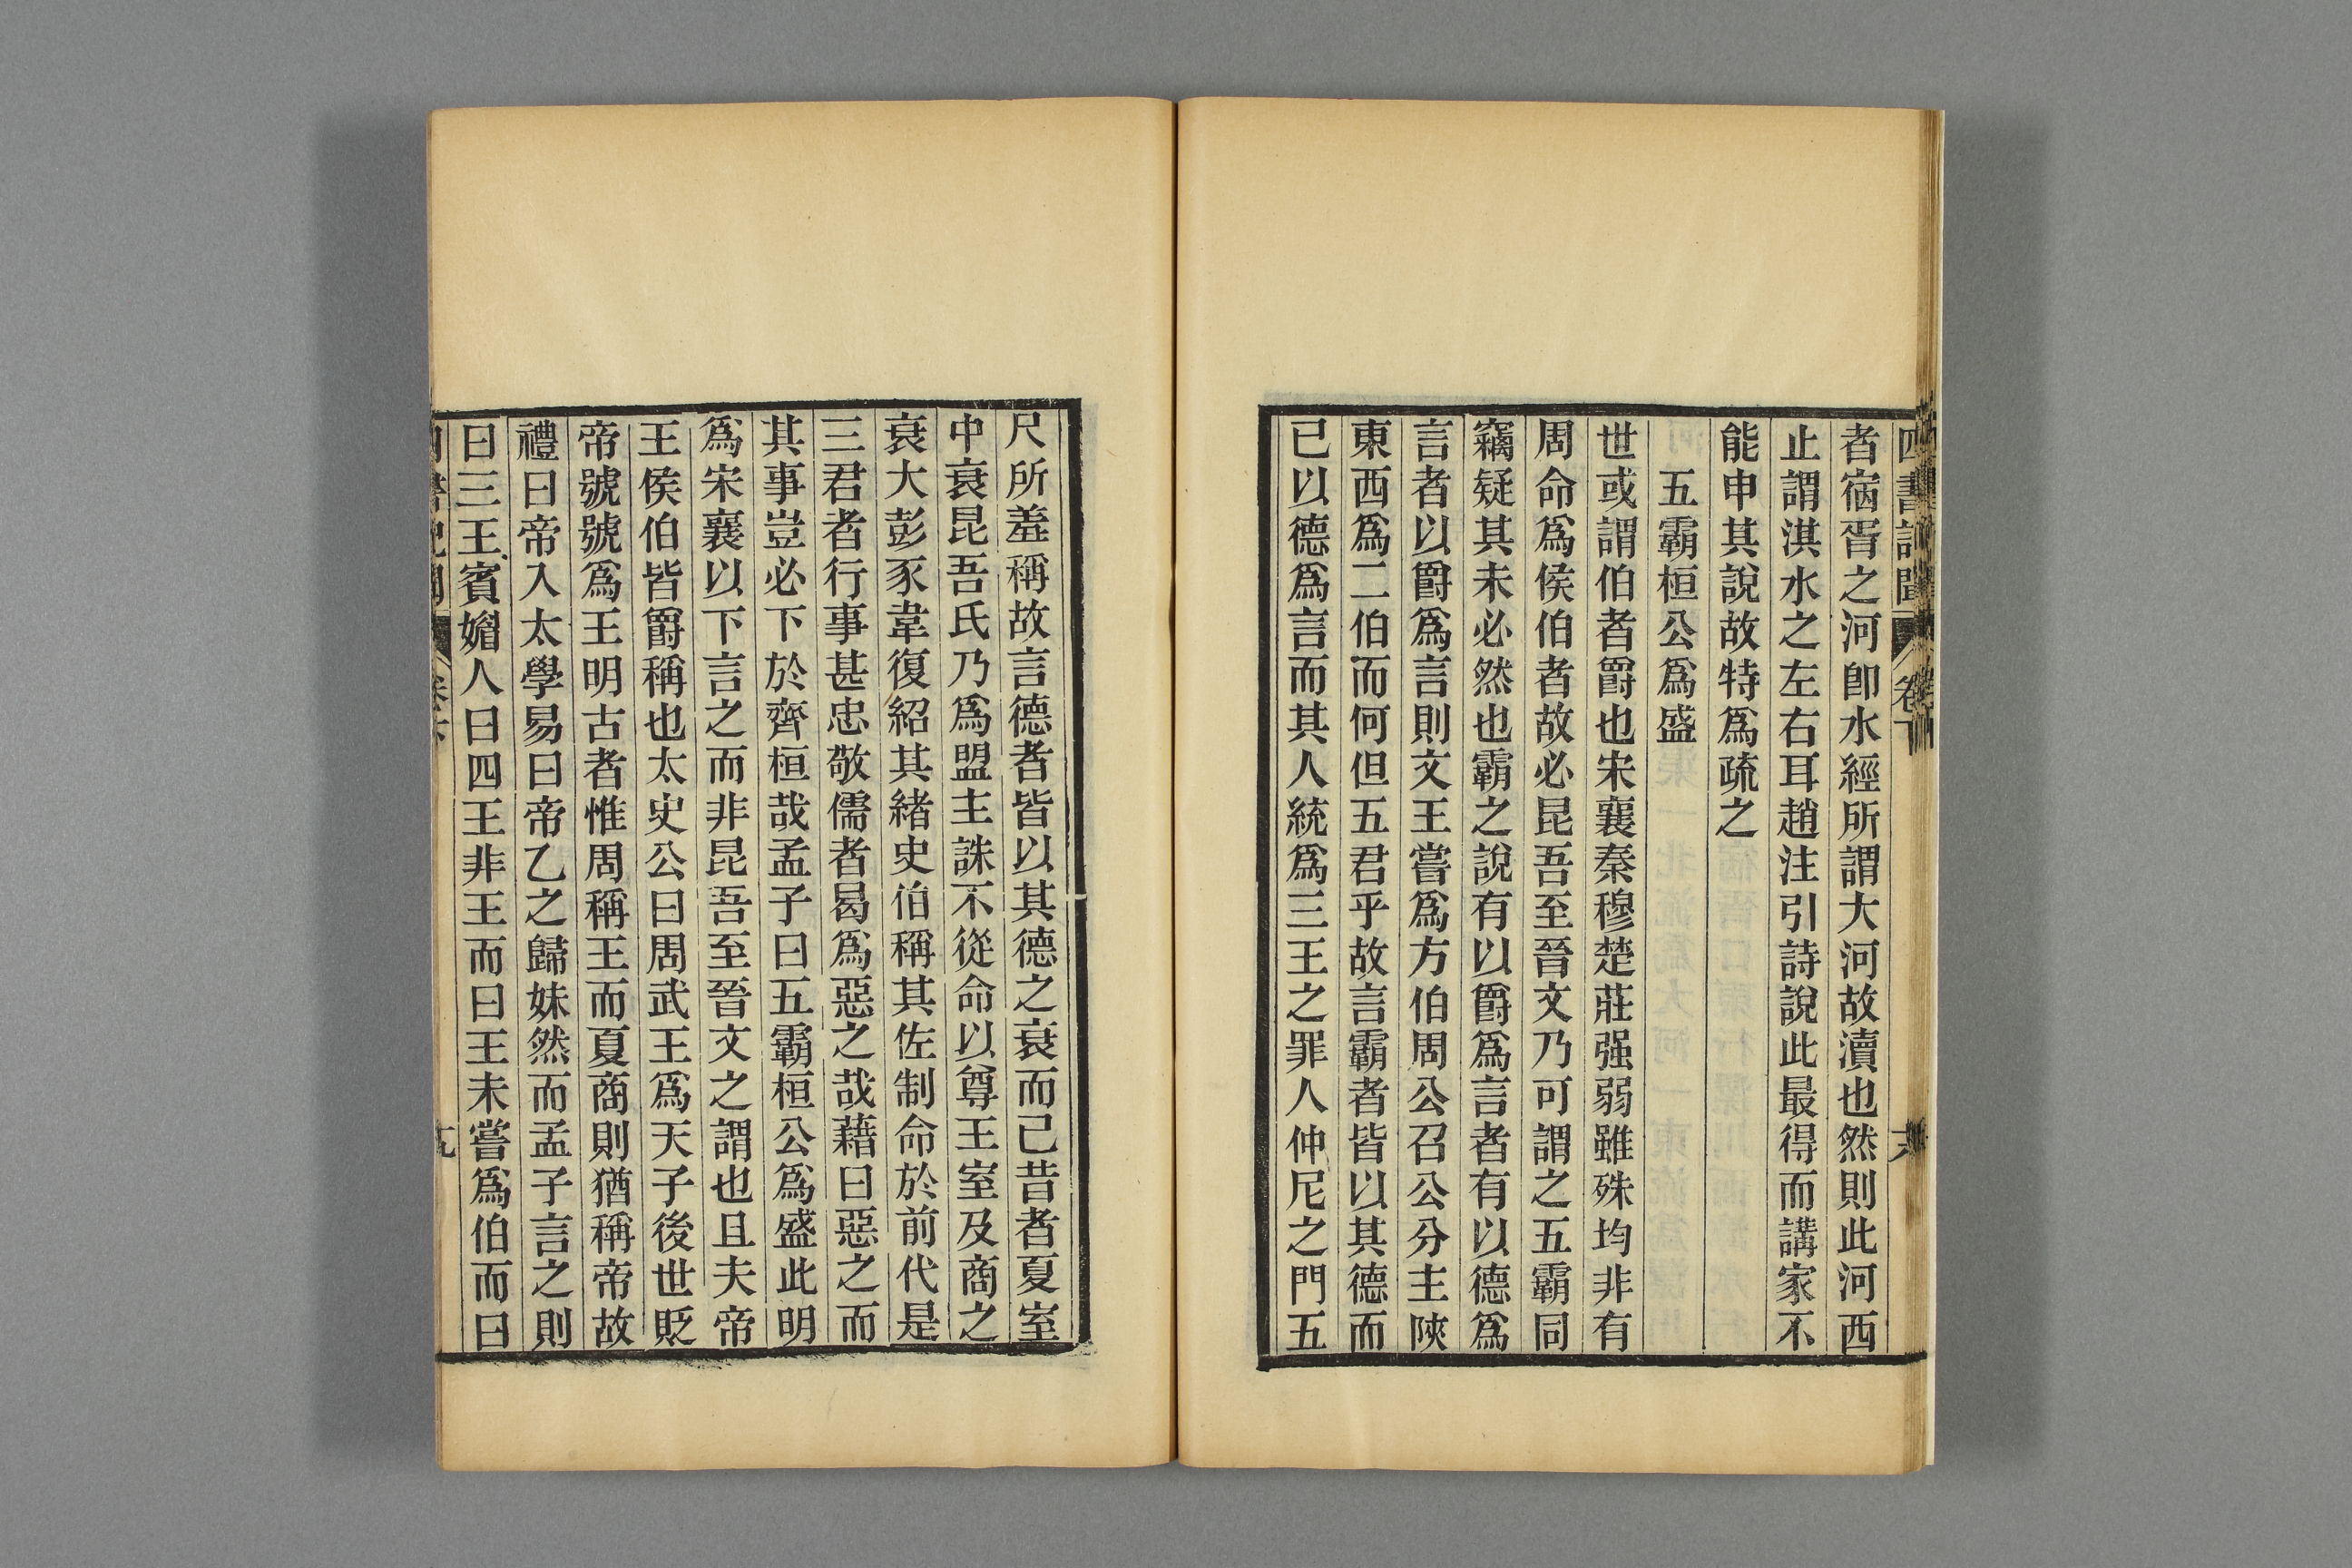 者宿胥之河卽水經所謂大河故瀆也然則此河西
止謂淇水之左右耳趙注引詩說此最得而講家不
能申其說故特爲疏之
五霸桓公爲盛
世或謂伯者爵也宋襄秦穆楚莊强弱雖殊均非有
周命爲侯伯者故必昆吾至晉文乃可謂之五霸同
竊疑其未必然也霸之說有以爵爲言者有以德爲
言者以爵爲言則文王嘗爲方伯周公召公分主陝
東西爲二伯而何但五君乎故言霸者皆以其德而
已以德爲言而其人統爲三王之罪人仲尼之門五
尺所羞稱故言德者皆以其德之衰而已昔者夏室
中衰昆吾氏乃爲盟主誅不從命以尊王室及商之
衰大彭豕韋復紹其緒史伯稱其佐制命於前代是
三君者行事甚忠敬儒者曷爲惡之哉藉曰惡之而
其事豈必下於齊桓哉孟子曰五霸桓公爲盛此明
爲宋襄以下言之而非昆吾至晉文之謂也且夫帝
王侯伯皆爵稱也太史公曰周武王爲天子後世貶
帝號號爲王明古者惟周稱王而夏商則猶稱帝故
禮曰帝入太學易曰帝乙之歸妹然而孟子言之則
曰三王賓媚人曰四王非王而曰王未嘗爲伯而曰